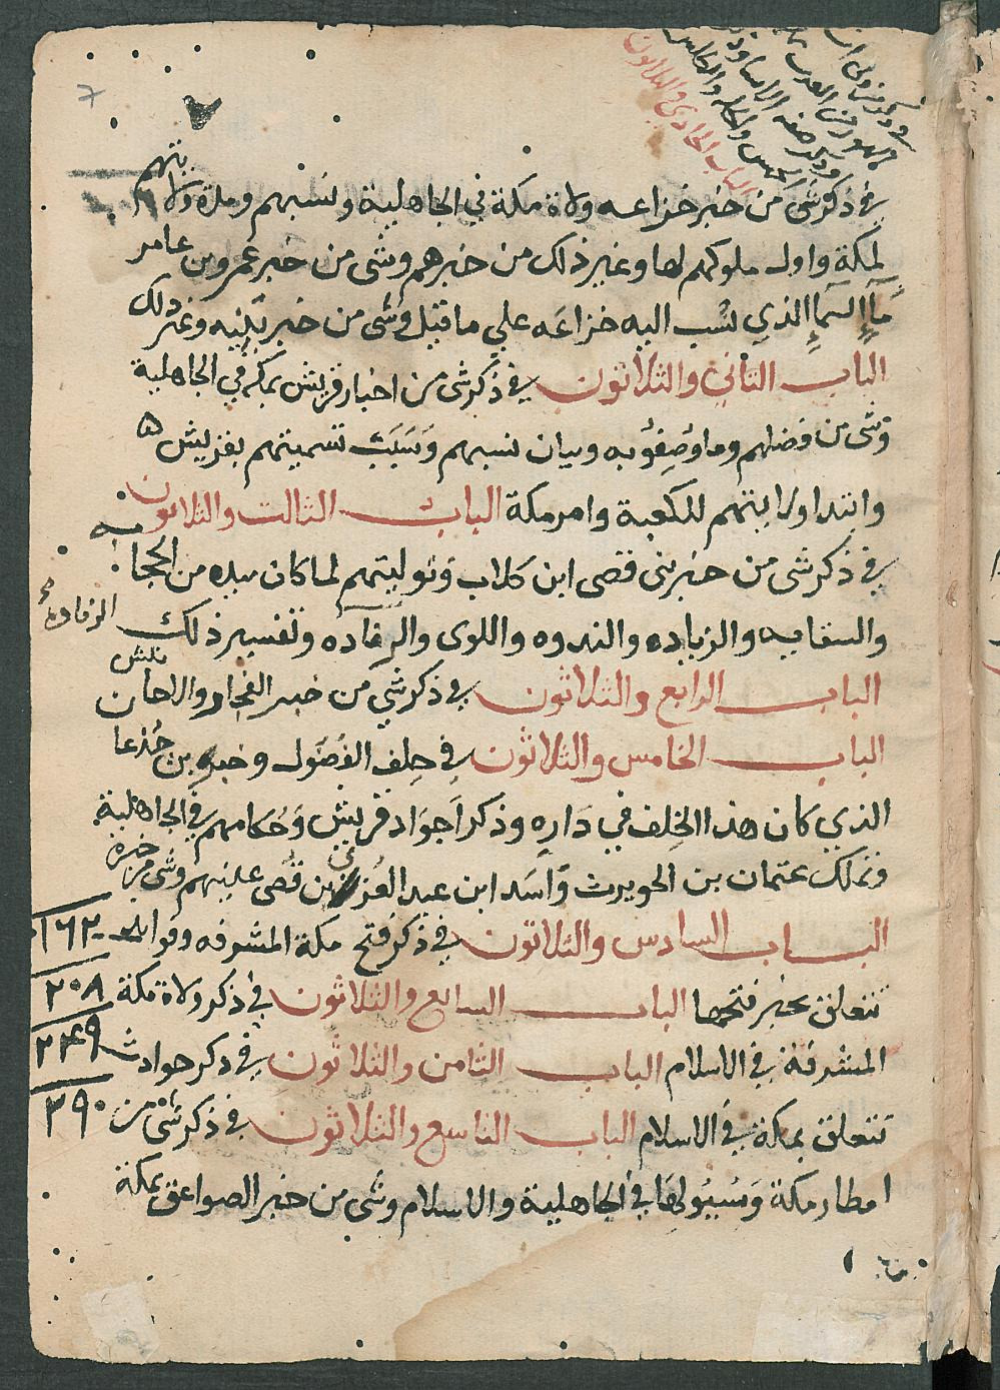 في ذكر شي من خبر خزاعه ولاة مكة في الجاهلية ونسبهم ومدة ولايتهم
لمكة واول ملوكهم لها وغير ذلك من خبرهم وشى من خبر عمرو بن عامر
مآء السمآء الذي نسب اليه خزاعه علي ما قيل وشى من خبر بنيه وغير ذلك
الباب الثاني والثلاثون في ذكر شى من اخبار قريش بمكة في الجاهلية
وشى من فضلهم وما وصفو به وبيان نسبهم وسبب تسميتهم بقريش
وابتدا ولايتهم للكعبة وامر مكة الباب الثالث والثلاثون
في ذكر شى من خبر بنى قصى ابن كلاب وتوليتهم لما كان بيده من الحجابه
والسقايه والزياده والندوه واللوى والرفاده وتفسير ذلك
الرفاده
الباب الرابع والثلاثون في ذكر شي من خبر الفجار والاحابيش
الباب الخامس والثلاثون في حلف الفضول وخبر بن جدعان
الذي كان هذا الحلف في داره وذكر اجواد قريش وحكامهم في الجاهلية
وتملك عثمان بن الحويرث واسد ابن عبد العزى بن قصى عليهم وشى من خبره
الباب السادس والثلاثون في ذكر فتح مكة المشرفه وفوايد ١٦٢
تتعلق بخبر فتحها الباب السابع والثلاثون في ذكر ولاة مكة ٢٠٨
المشرفة في الاسلام الباب الثامن والثلاثون في ذكر حوادث ٢٤٩
تتعلق بمكة في الاسلام الباب التاسع والثلاثون في ذكر شى من ٢٩٠
امطار مكة وسيولها في الجاهلية والاسلام وشى من خبر الصواعق بمكة